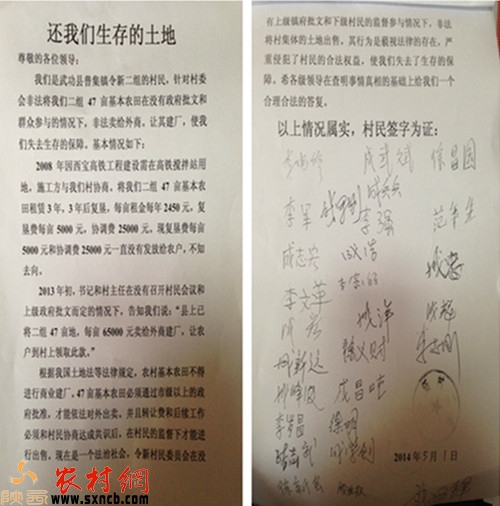 还我们生存的土地
尊敬的各位领导：
我们是武功县普集镇令新二组的村民，针对村委
会非法将我们二组 47 亩基本农田在没有政府批文和
群众参与的情况下，非法卖给外商，让其建厂，使我
们失去生存的保障。基本情况如下：
2008 年因西宝高铁工程建设需在高铁搅拌站用
地，施工方与我们村协商，将我们二组 47 亩基本农
田租赁 3 年，3 年后复垦，每亩租金每年 2450 元，复
垦费每亩 5000 元，协调费 25000 元，现复垦费每亩
5000 元和协调费 25000 元一直没有发放给农户，不知
去向。
2013 年初，书记和村主任在没有召开村民会议和
上级政府批文而定的情况下，告知我们说："县上已
将二组 47 亩地，每亩 65000 元卖给外商建厂，让农
户到村上领取此款。"
根据我国土地法等法律规定，农村基本农田不得
进行商业建厂，47 亩基本农田必须通过市级以上的政
府批准，才能依法对外出卖，并且转让费和后续工作
必须和村民协商达成共识后，在村民的监督下才能进
行出售，现在是一个法治社会，令新村民委员会在没
有上级镇政府批文和下级村民的监督参与情况下，非法
将村集体的土地出售，其行为是藐视法律的存在，严
重侵犯了村民的合法权益，使我们失去了生存的保
障。希各级领导在查明事情真相的基础上给我们一个
合理合法的答复。
以上情况属实，村民签字为证：
徐昌国
李军
李强
成志兴
成浩
李文革
成洋
成昌
徐明
2014 年 5 月 1 日
陕西
农村網
www.sxncb.com